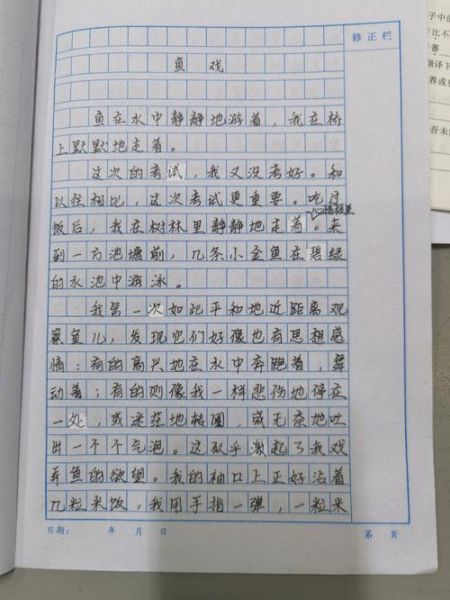 修正栏
鱼戏
鱼在水中静静地游着，我在桥
上默默地走着。
这次的考试，我又没考好。和
以往相比，这次考试更重要。吃完
饭后，我在树林里静静地走着。来
到一方池塘前，几条小金鱼在碧绿
的水池中游泳。
我第一次如此平和地近距离观
察鱼儿，发现它们好像也有思想感
情：有的高兴地在水中奔跑着，舞
动着；有的则像我一样悲伤地停在
一处，或迷茫地转圈，或无奈地吐
出一个个气泡。这似乎激起了我戏
弄鱼的欲望。我的袖口上正好沾着
几粒米饭，我用手指一弹，一粒米
日期： 年 月 日 第 页